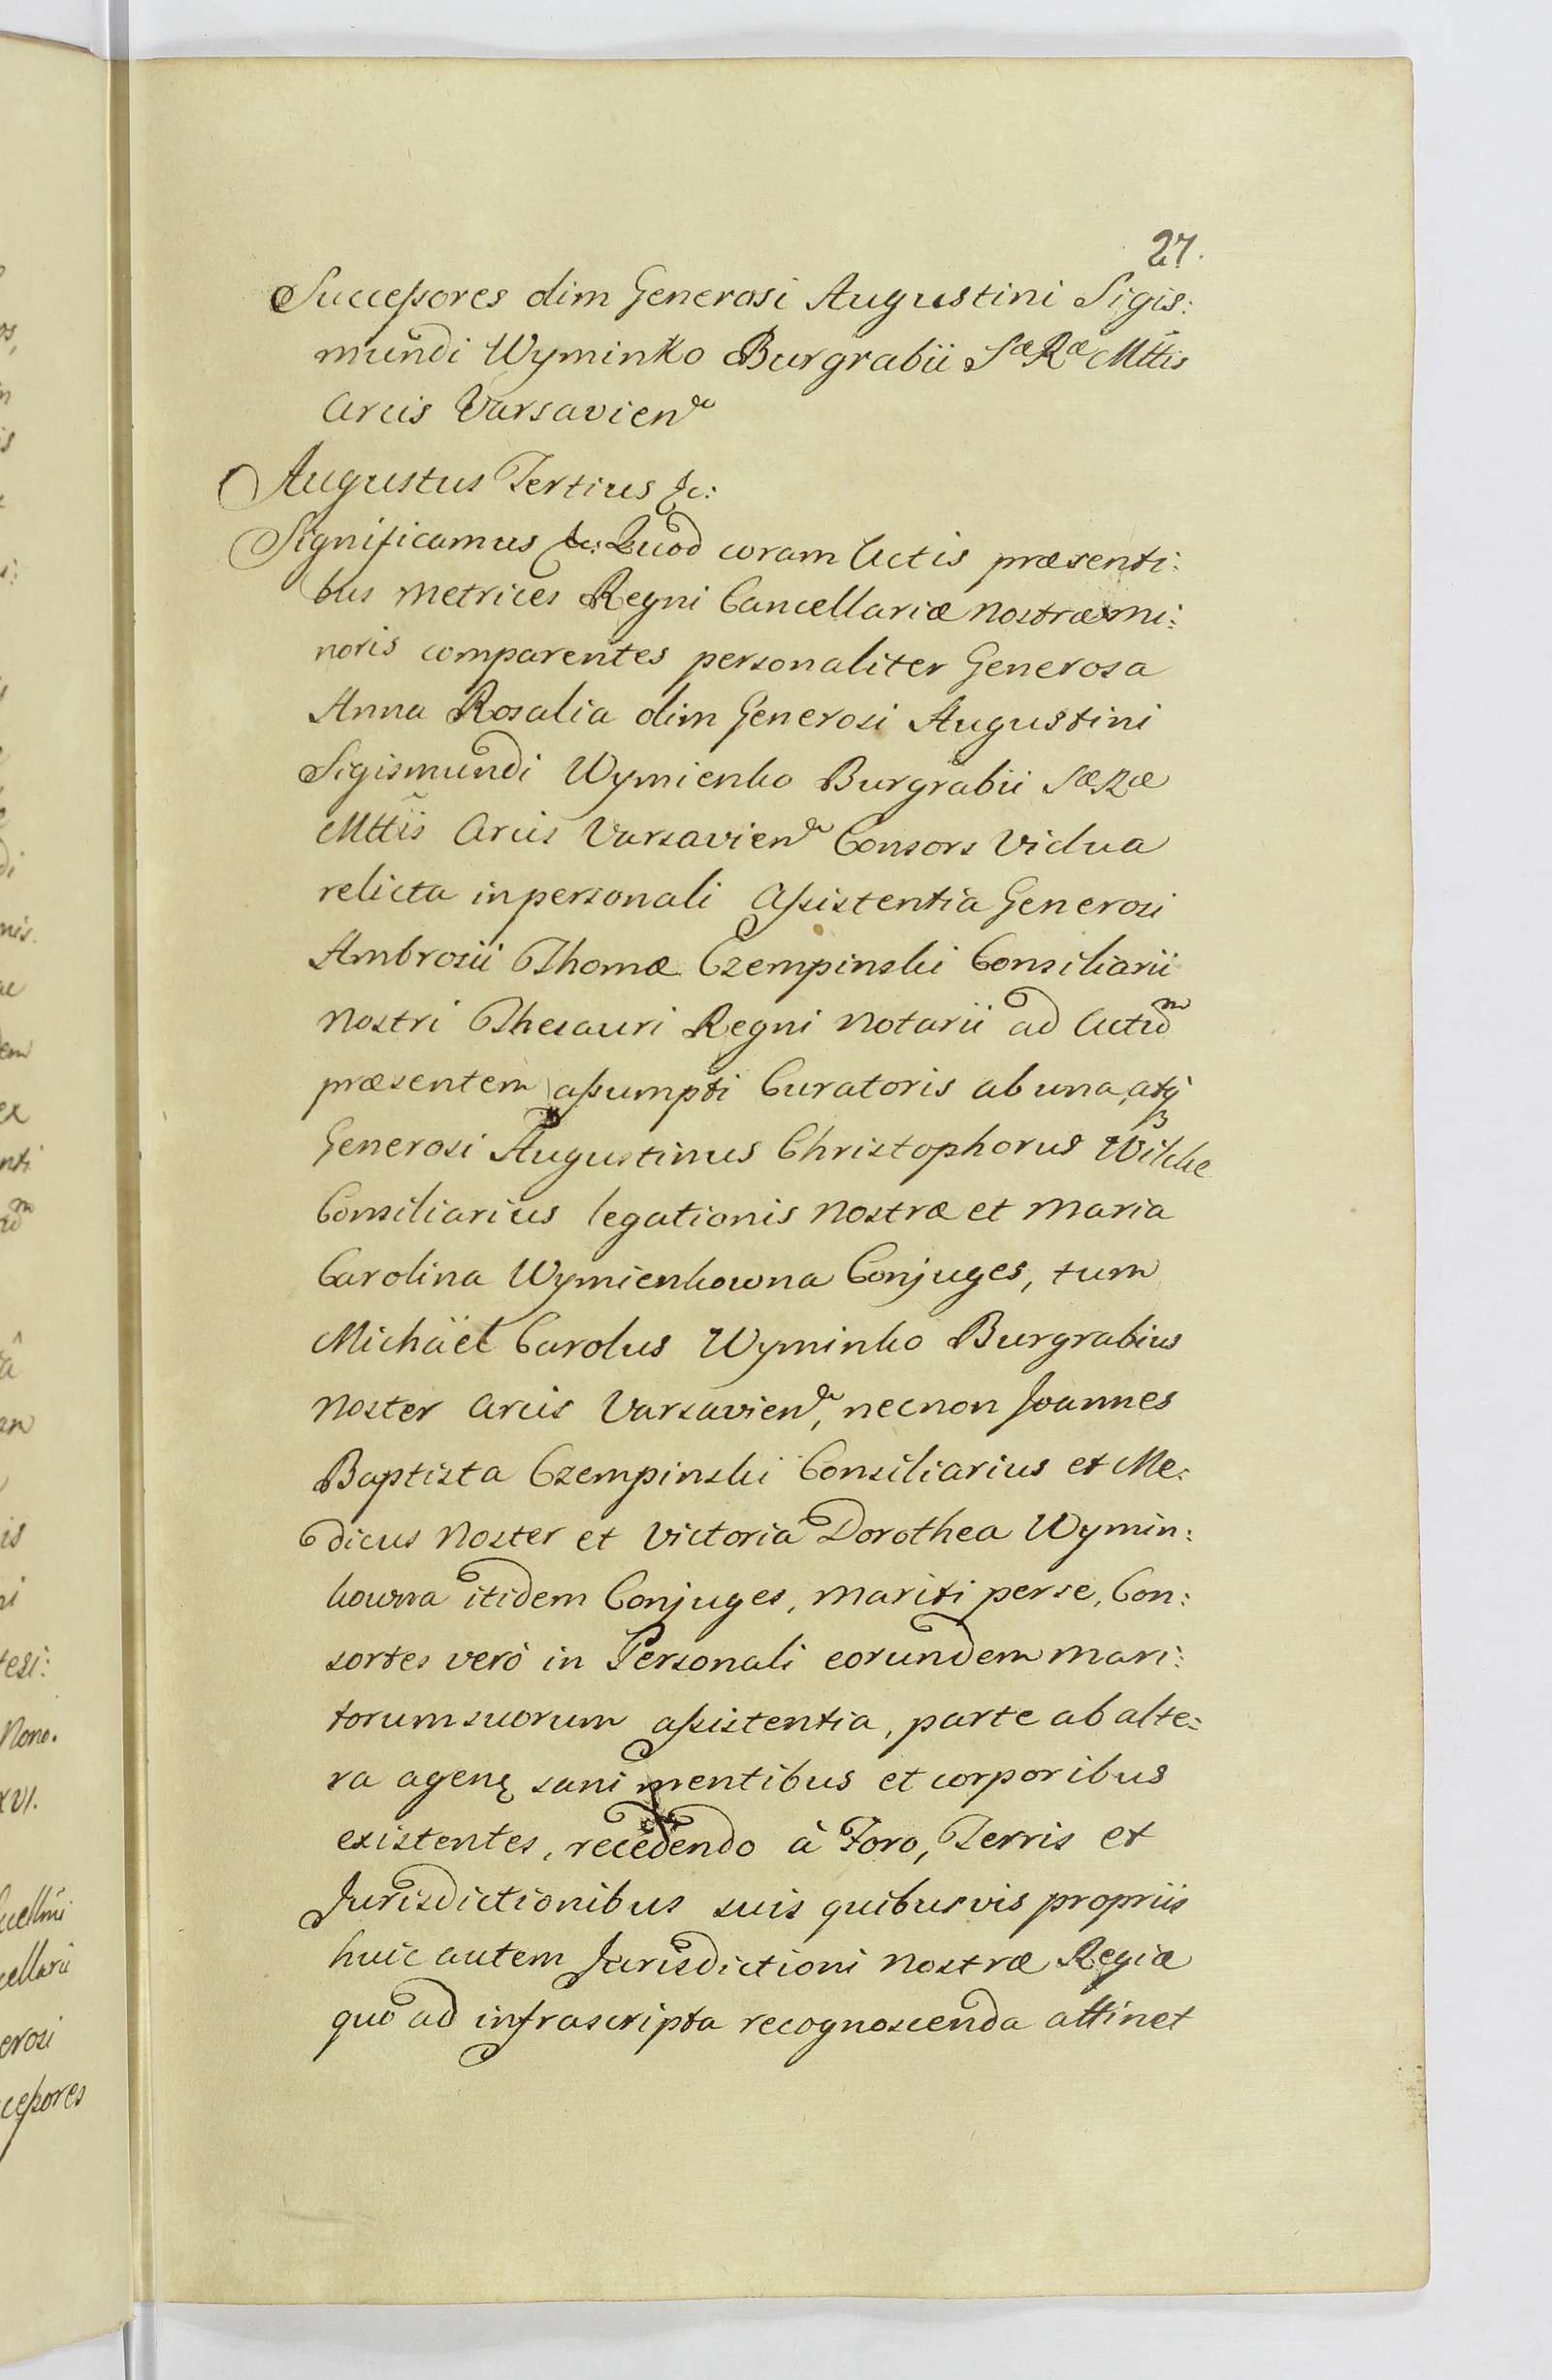 27.
Successores olim Generosi Augustini Sigis:
mundi Wyminko Burgrabii Sæ Ræ Mttis
Arcis Varsavien
Augustus Tertius &c:
Significamus &c: Quod coram Actis præsenti:
bus Metrices Regni Cancellariæ Nostræ mi:
noris comparentes personaliter Generosa
Anna Rosalia olim Generosi Augustini
Sigismundi Wymienko Burgrabii Sæ Ræ
Mttis Arcis Varsavien Consors Vidua
relicta in personali Assistentia Generosi
Ambrosii Thomæ Czempinski Consiliarii
Nostri Thesauri Regni Notarii ad Actum
præsentem assumpti Curatoris ab una, atq
Generosi Augustinus Christophorus Wilcke
Consiliarius legationis Nostræ et Maria
Carolina Wymienkowna Conjuges, tum
Michäel Carolus Wyminko Burgrabius
Noster Arcis Varsavien, necnon Joannes
Baptista Czempinski Consiliarius et Me:
dicus Noster et Victoria Dorothea Wymin:
kowna itidem Conjuges, Mariti per se, Con:
sortes verò in Personali eorundem Mari:
torum suorum assistentia, parte ab alte:
ra agenę sani mentibus et corporibus
existentes, recedendo à Foro, Terris et
Jurisdictionibus suis quibusvis propriis
huic autem Jurisdictioni Nostræ Regiæ
quo ad infrascripta recognoscenda attinet
os,
is
nis.
em
ex
nti
is
Nono.
XVI.
cellarii
erosi
cessores